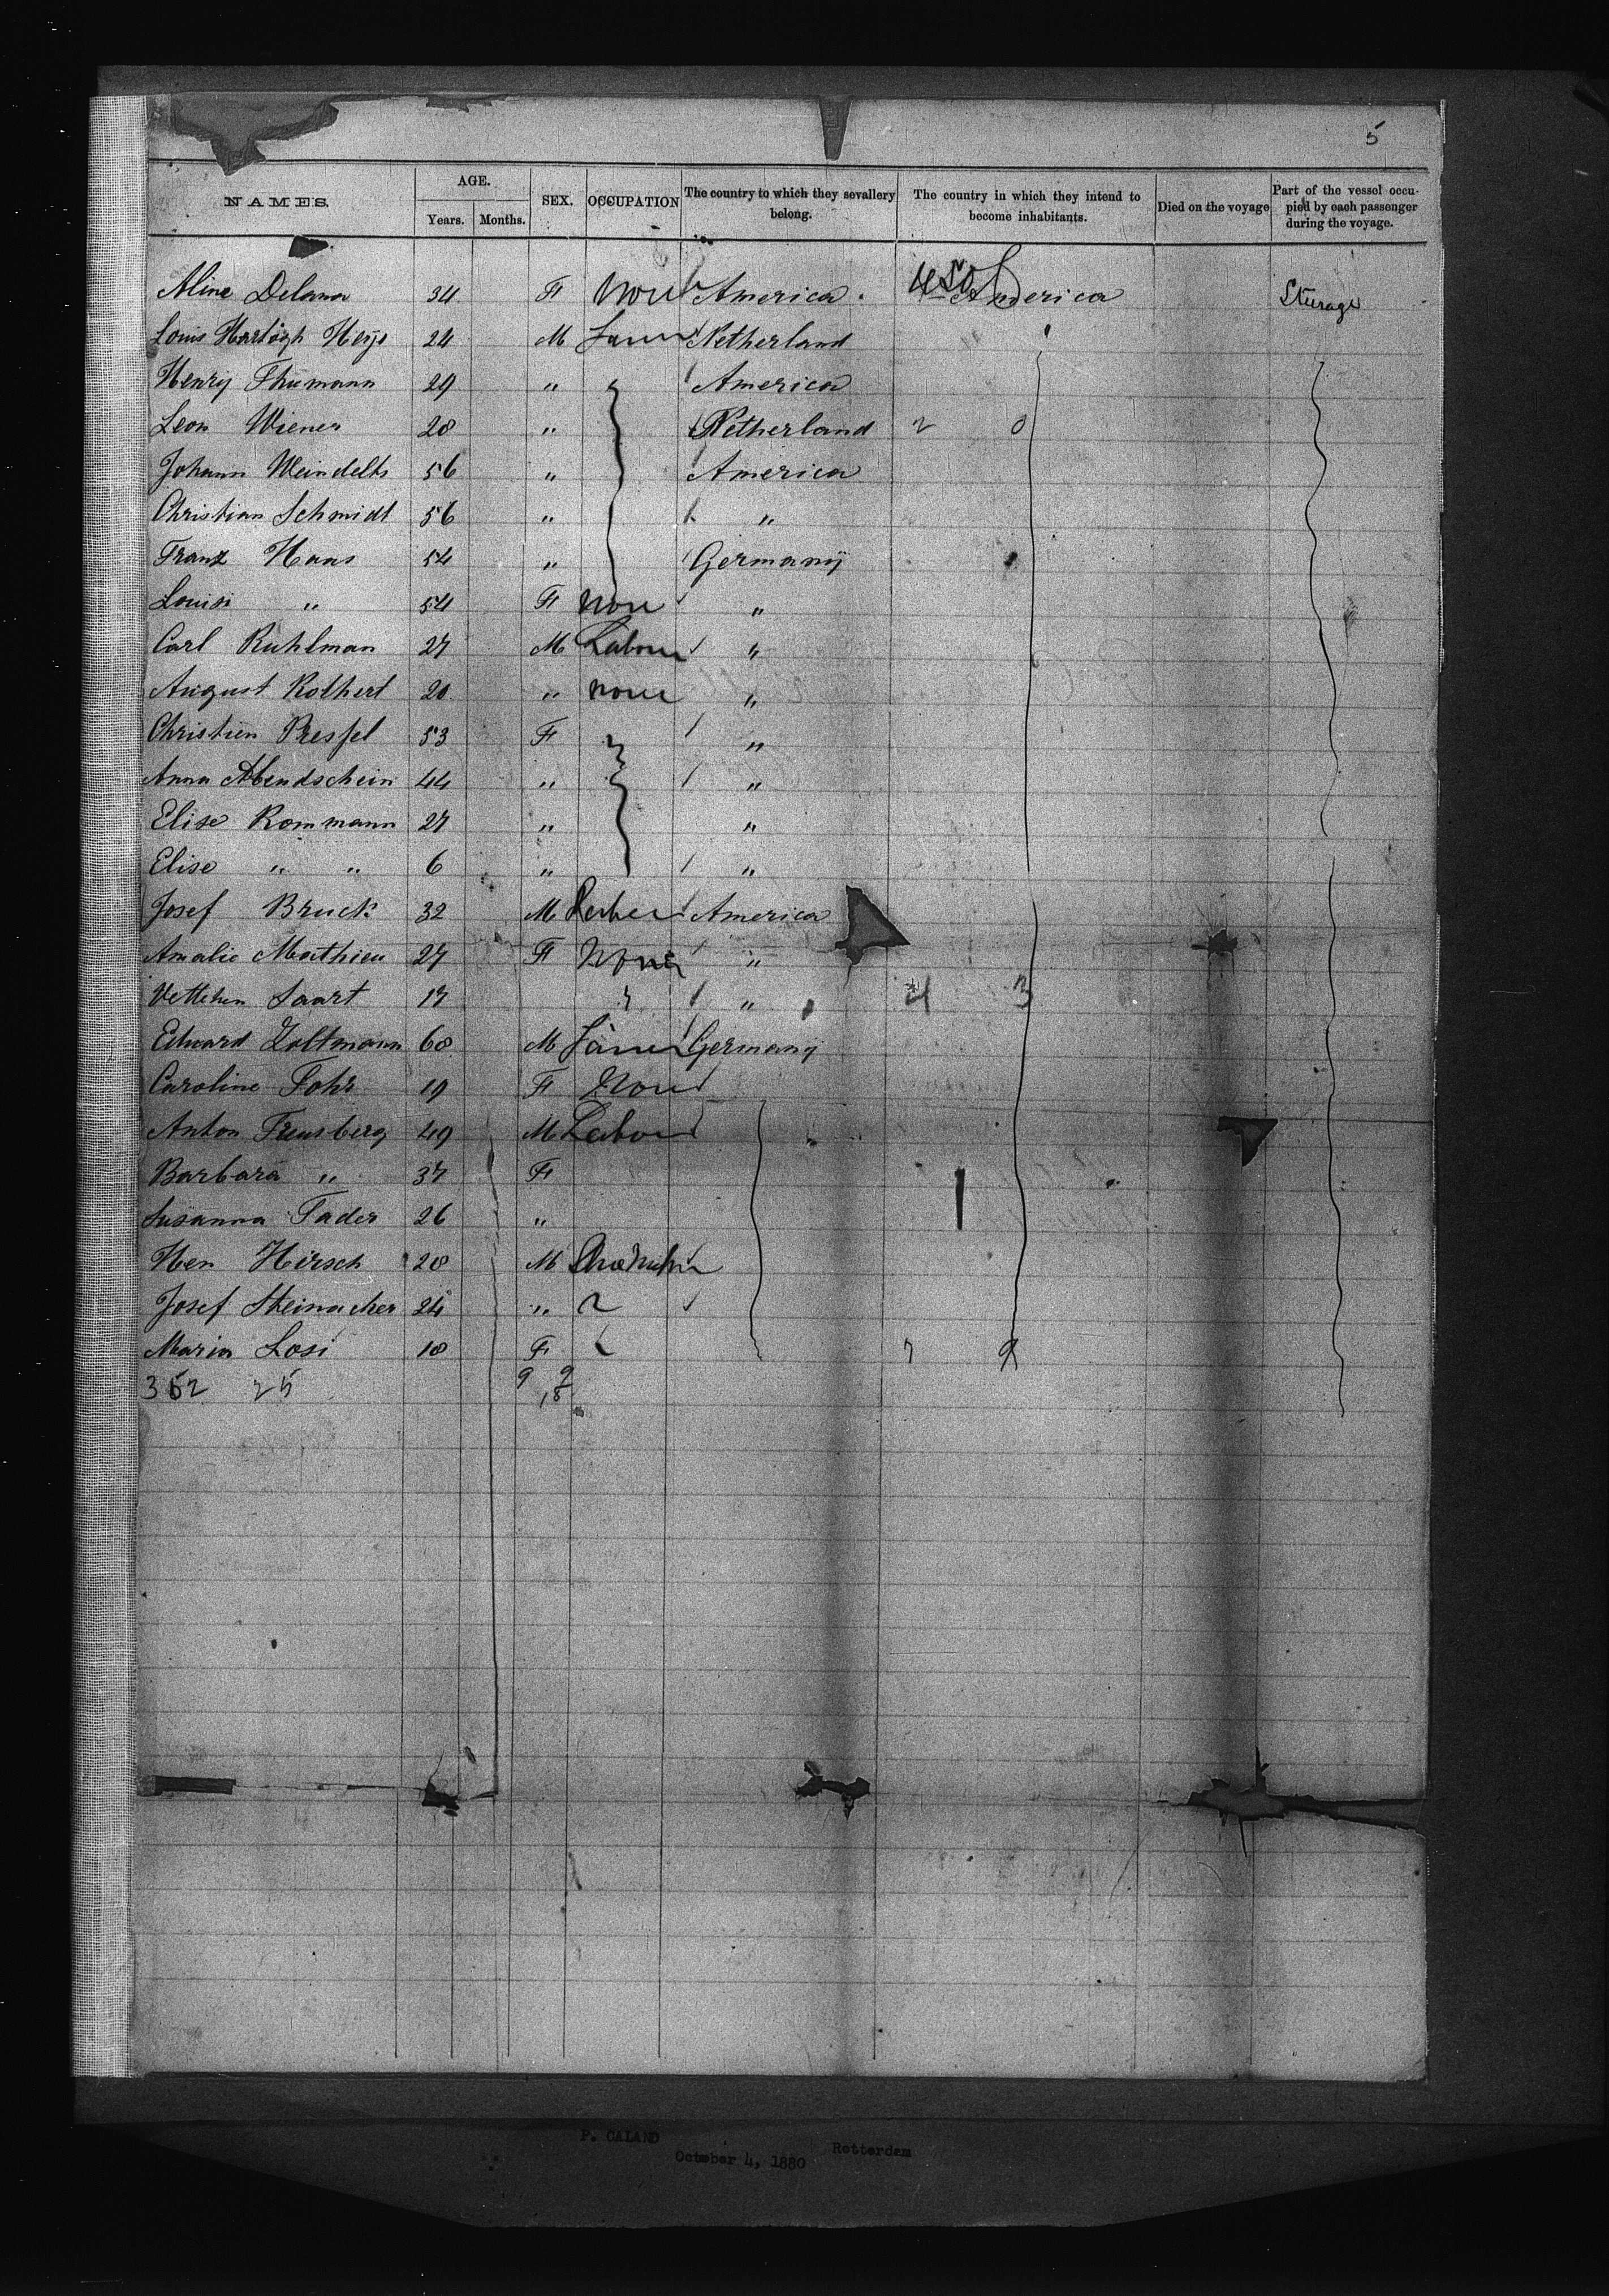 5
NAMES. AGE. Years. Months. SEX. OCCUPATION The country to which they sevallery belong. The country in which they intend to become inhabitants. Died on the voyage Part of the vessel occupied by each passenger during the voyage.
Aline Delana 34 F None America. USA America Sturage
Louis Hartogh Heys 24 M Netherland
Henry Thumann 29 " America
Leon Wiener 28 " Netherland 2 0
Johann Weindelts 56 " America
Christian Schmidt 56 " "
Franz Haas 54 " Germany
Louisi " 54 F None "
Carl Ruhlman 27 M Labour "
August Rothert 20 " none "
Christien Pressel 53 F "
Anna Abendschein 44 " "
Elise Rommann 27 " "
Elise " " 6 " "
Josef Bruck 32 M America
Amalie Mathieu 27 F None "
Vettchen Saart 17 " 4 3
Eduard Zoltmann 68 M Germany
Caroline Fohr 19 F None
Anton Freusberg 49 M Labour
Barbara " 37 F 1
Susanna Fader 26 "
Hen Hirsch 28 M
Josef Steinacher 24 "
Maria Losi 18 F 7 9
352 25 9 9
18
P. CALAND
October 4, 1880 Rotterdam